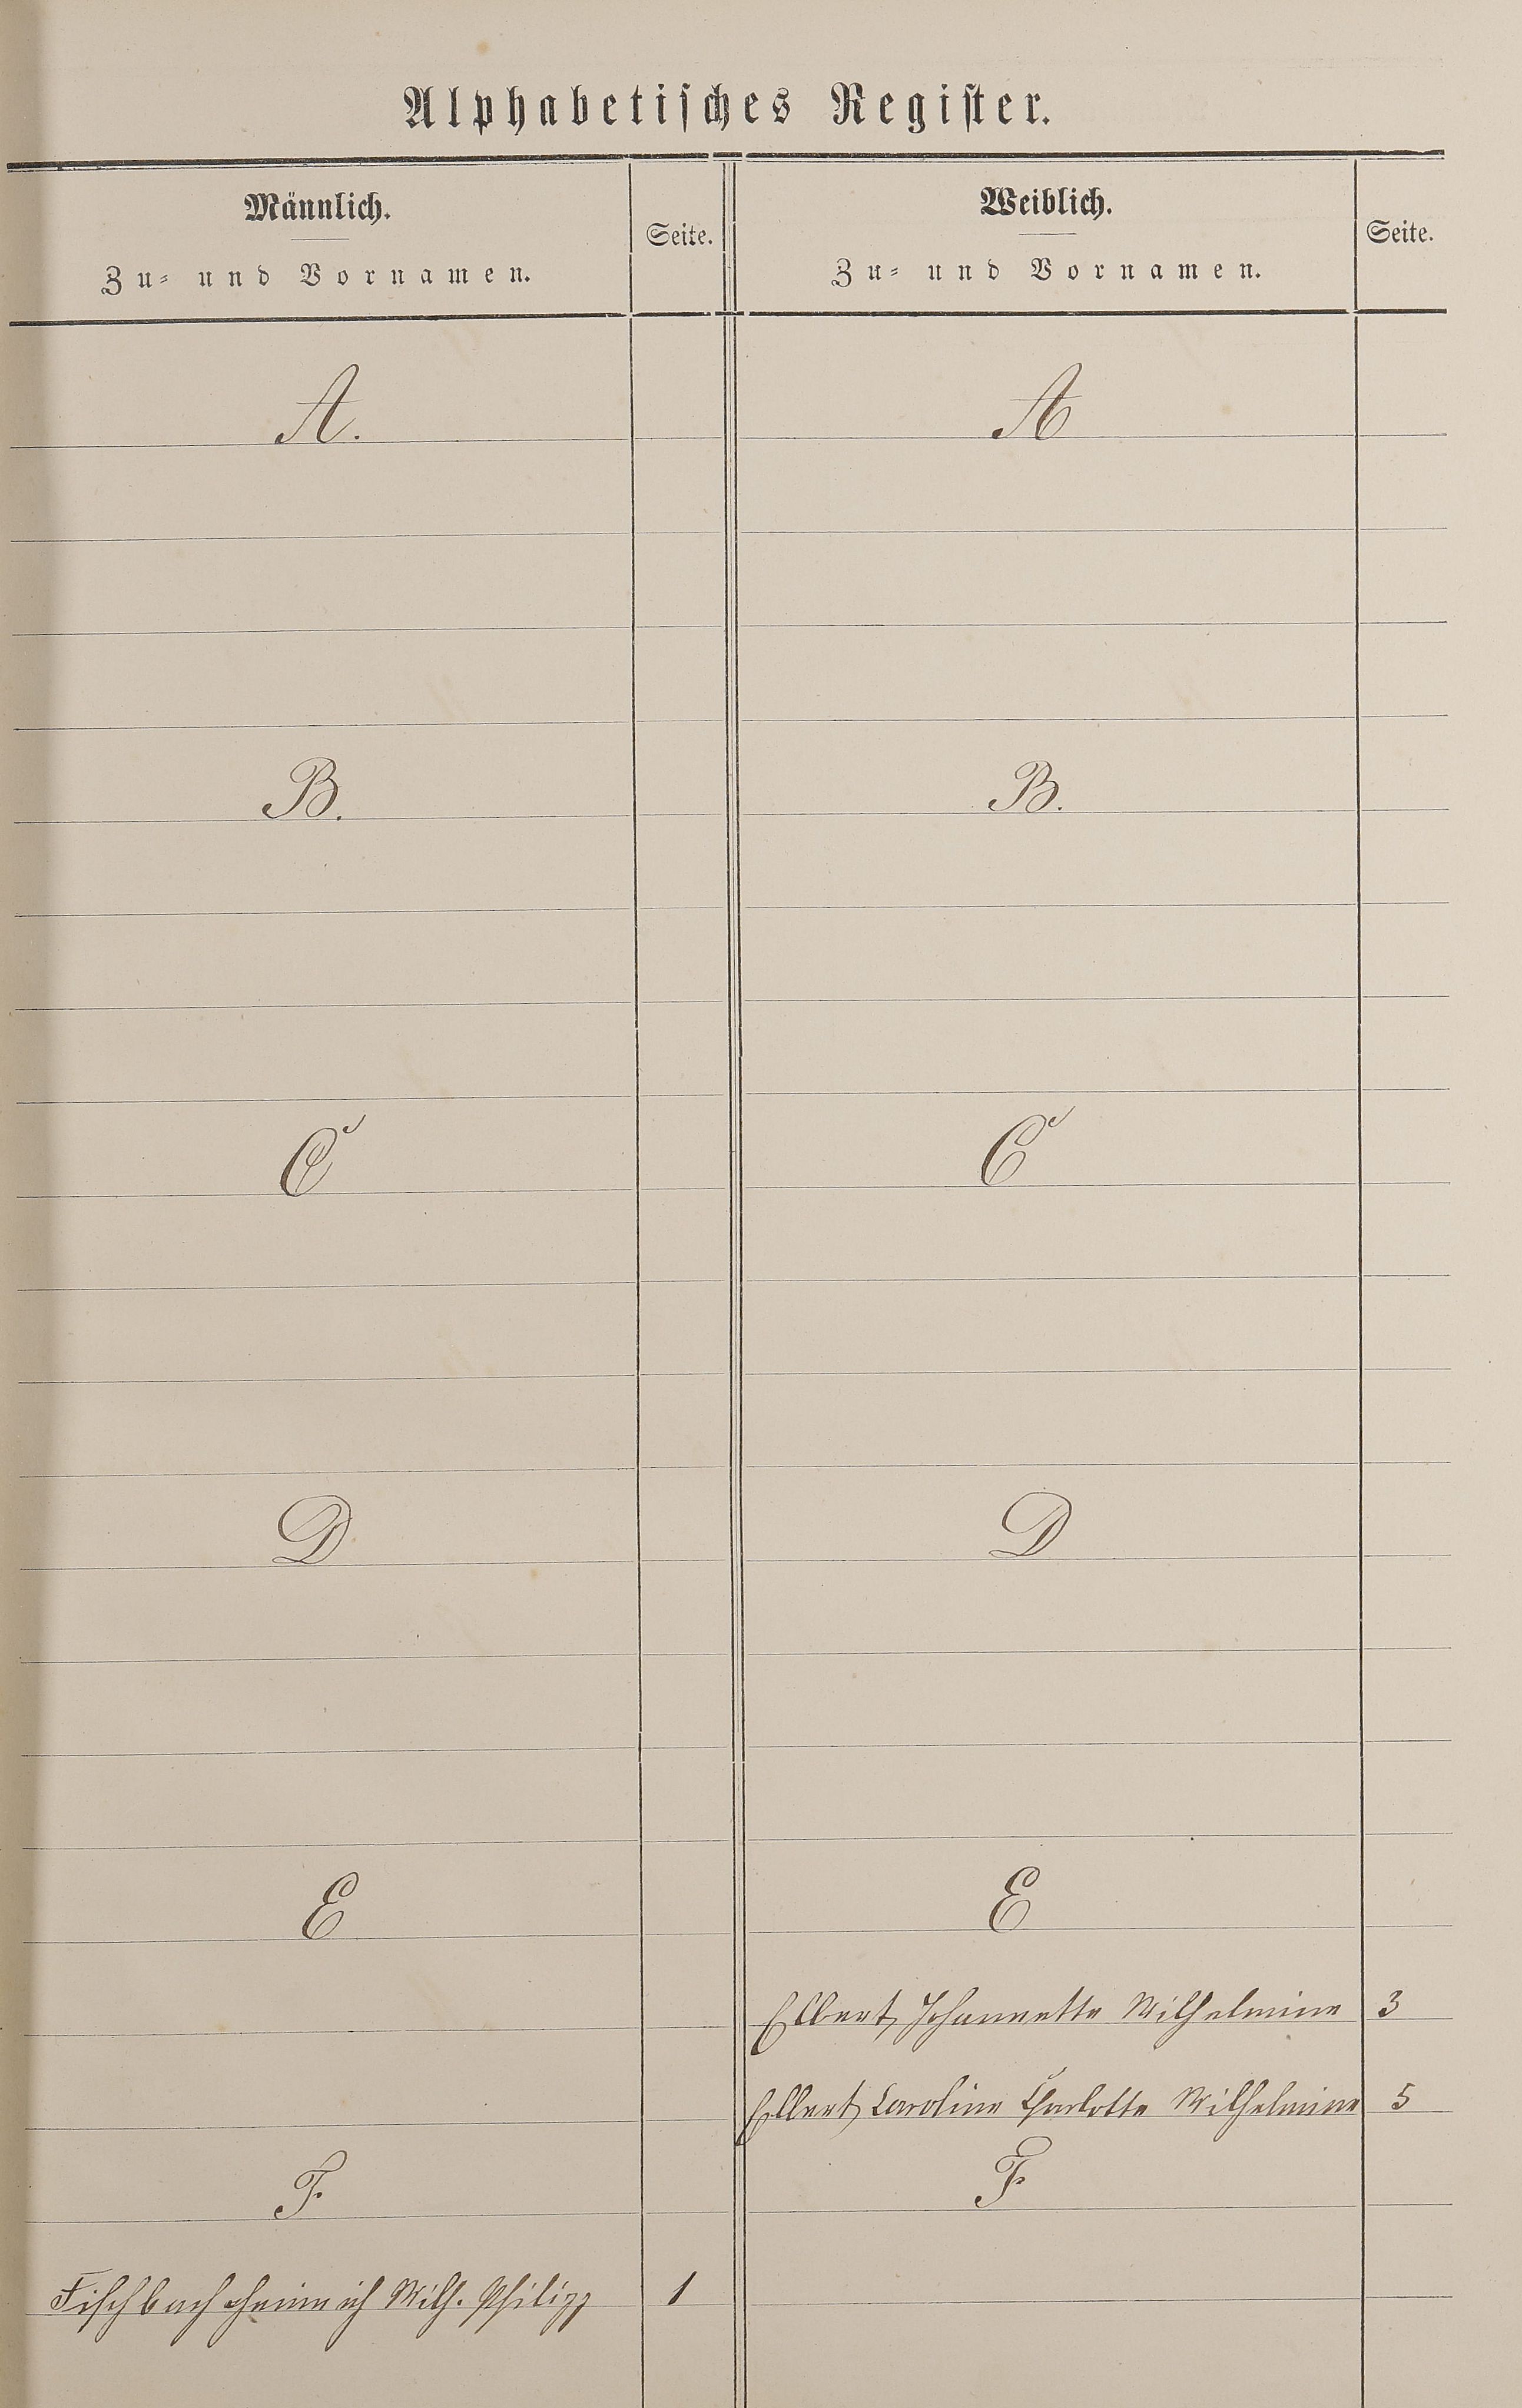 Alphabetisches Register.
Männlich.
Seite.
Weiblich.
Seite.
Zu- und Vornamen.
Zu- und Vornamen.
A.
A
B.
B.
C
C
D
D
E
E
Elbert, Johannette Wilhelmine 3
Elbert, Caroline Charlotte Wilhelmine 5
F.
F.
Fischbach Heinrich Wilh. Philipp 1